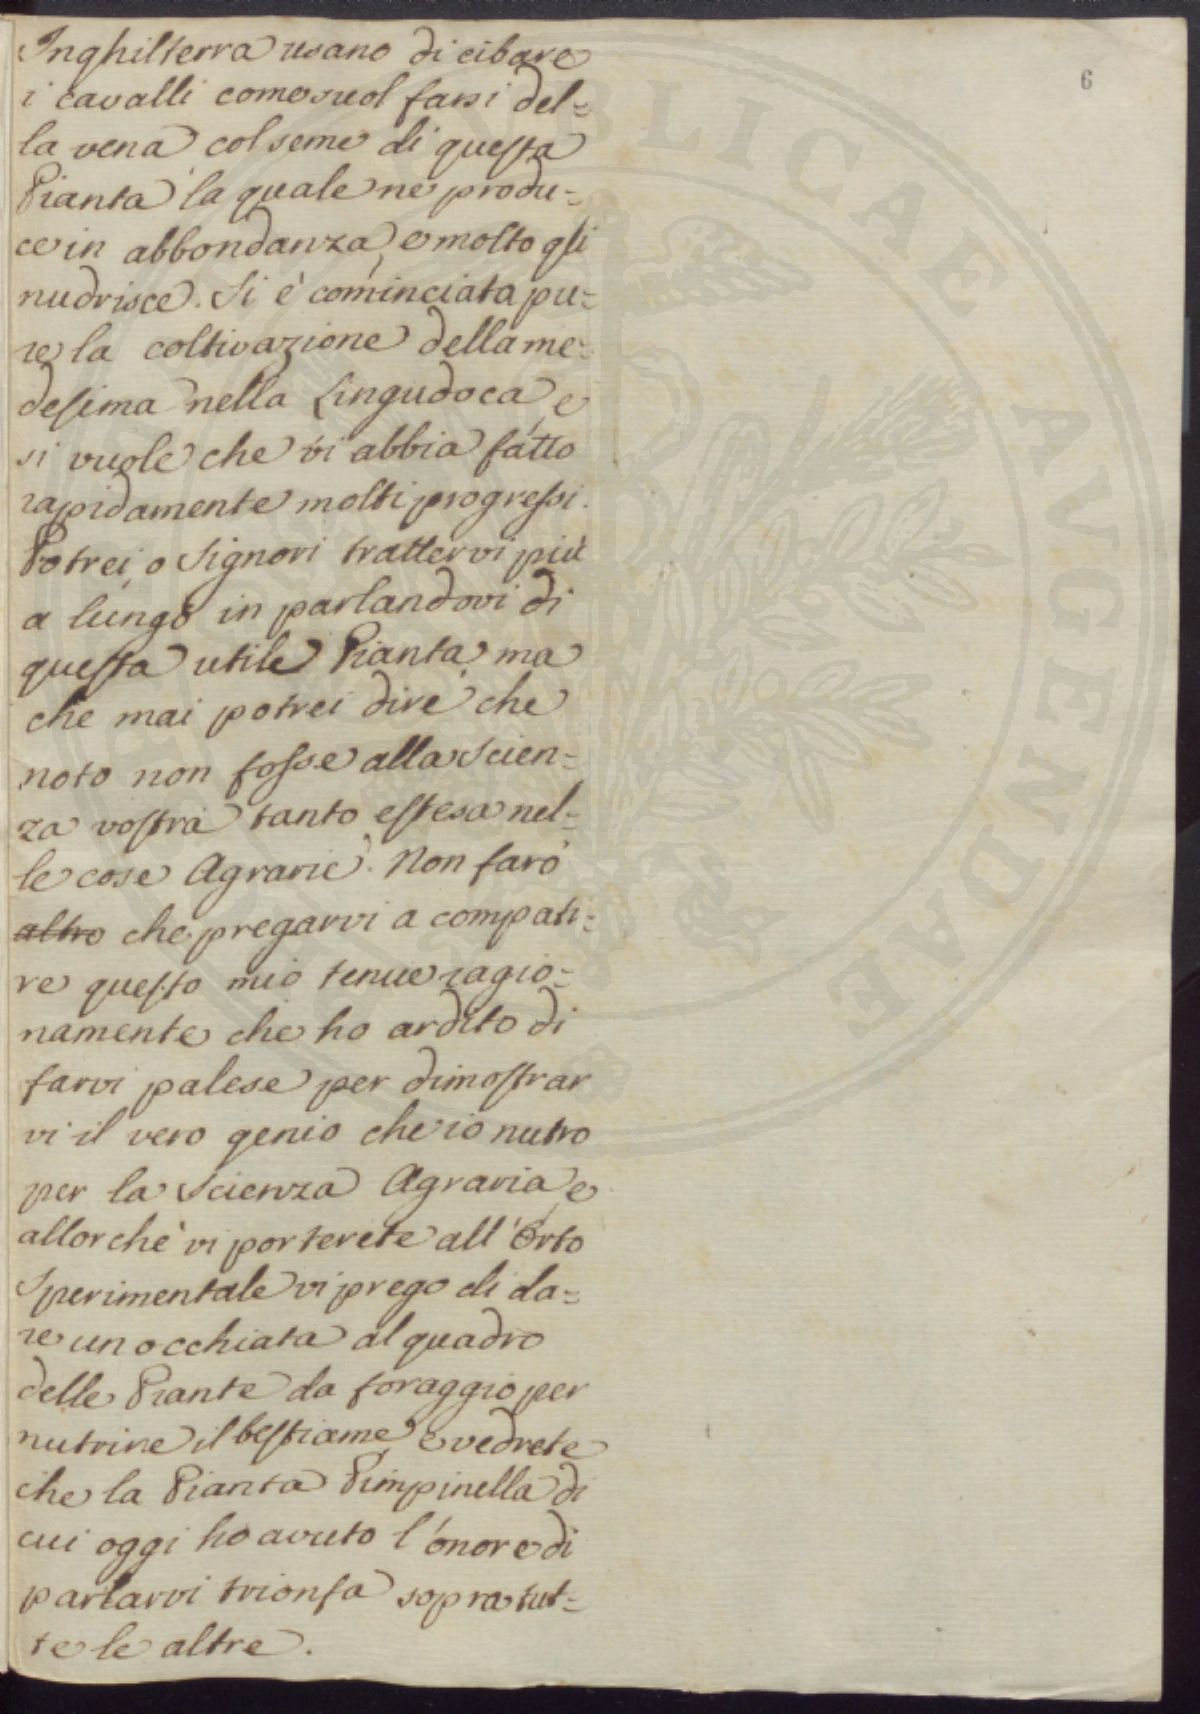 6
Inghilterra usano di cibare
i cavalli come suol farsi del=
la vena col seme di questa
Pianta la quale ne produ=
ce in abbondanza, e molto gli
nudrisce. Si è cominciata pu=
re la coltivazione della me=
desima nella Lingudoca, e
si vuole che vi abbia fatto
rapidamente molti progressi.
Potrei, o Signori trattervi più
a lungo in parlandovi di
questa utile Pianta, ma
che mai potrei dire che
noto non fosse alla Scien=
za vostra tanto estesa nel=
le cose Agrarie. Non farò
altro che pregarvi a compati=
re questo mio tenue ragio=
namente che ho ardito di
farvi palese per dimostrar
vi il vero genio che io nutro
per la Scienza Agraria, e
allorchè vi porterete all'Orto
Sperimentale vi prego di da=
re un occhiata al quadro
delle Piante da foraggio per
nutrire il bestiame, e vedrete
che la Pianta Pimpinella di
cui oggi ho avuto l'onore di
parlarvi trionfa sopra tut=
te le altre.
PUBLICAE AVGENDAE